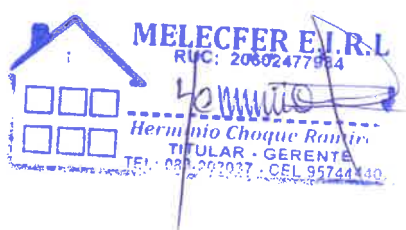 MELECFER E.I.R.L
RUC: 20602477984
Herminio Choque Ramir
TITULAR - GERENTE
TEL: 083-202037 - CEL 95744440